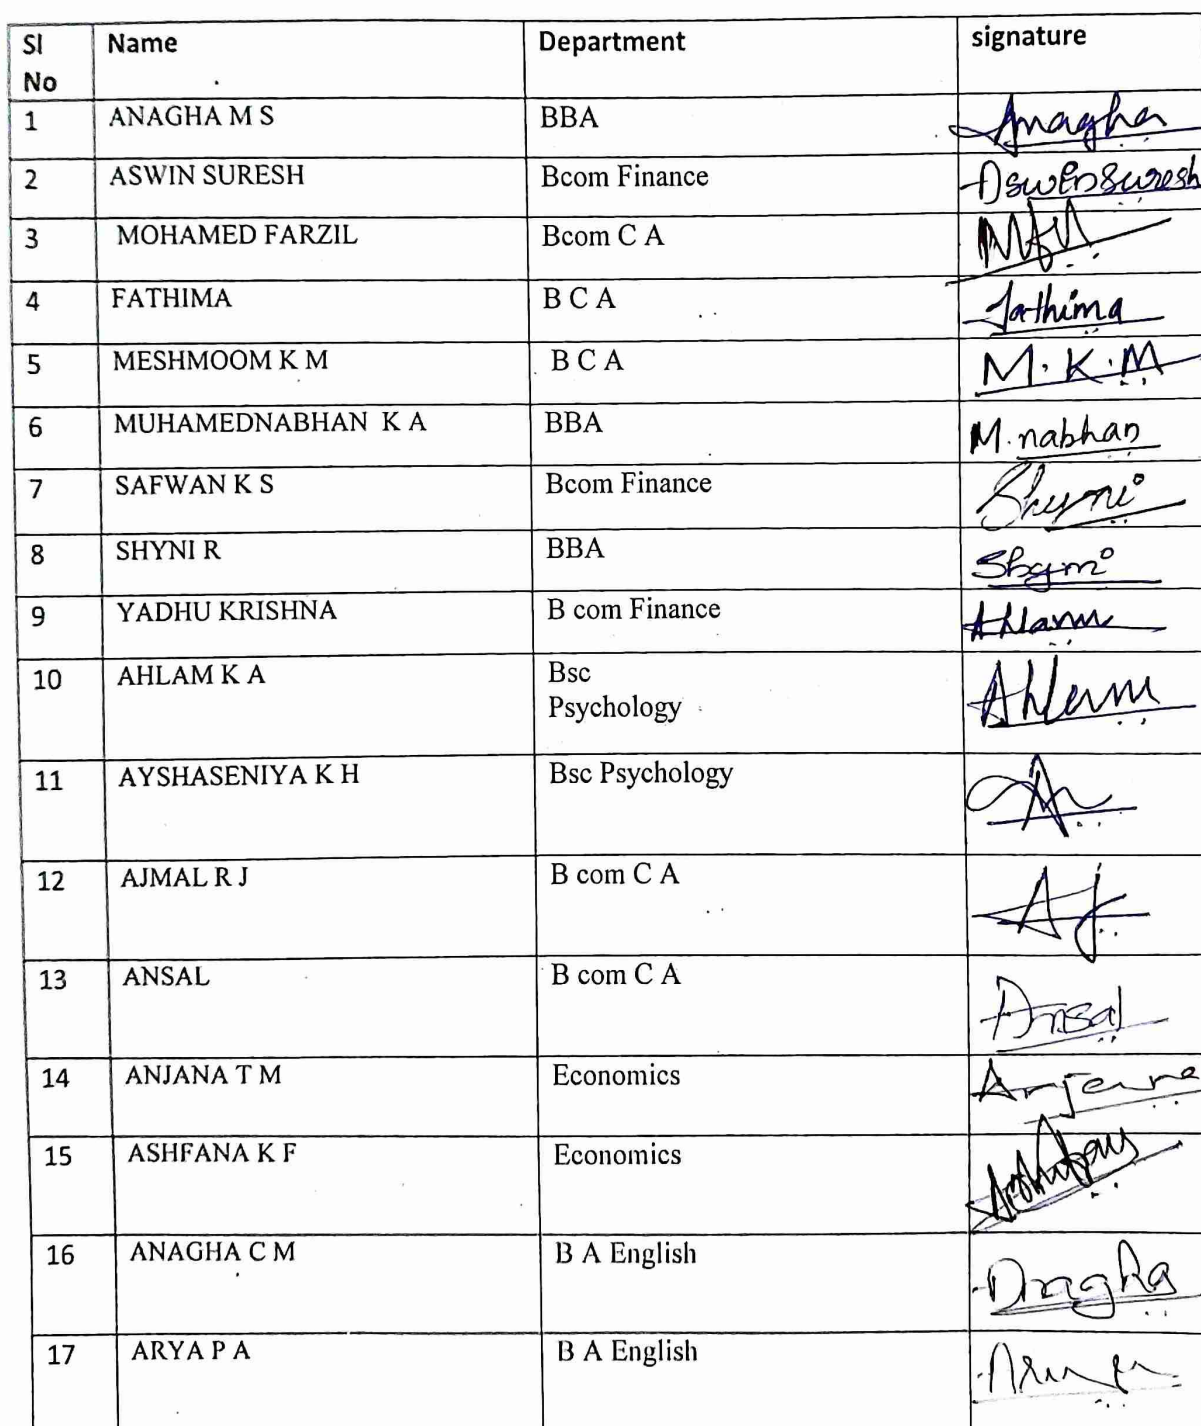 Sl No Name Department signature
1 ANAGHA M S BBA Anagha
2 ASWIN SURESH Bcom Finance Aswin Suresh
3 MOHAMED FARZIL Bcom C A
4 FATHIMA B C A Fathima
5 MESHMOOM K M B C A M.K.M
6 MUHAMEDNABHAN K A BBA M.nabhan
7 SAFWAN K S Bcom Finance Shyni
8 SHYNI R BBA Shyni
9 YADHU KRISHNA B com Finance Ahlam
10 AHLAM K A Bsc Ahlam
Psychology
11 AYSHASENIYA K H Bsc Psychology
12 AJMAL R J B com C A AJ
13 ANSAL B com C A Ansal
14 ANJANA T M Economics Anjana
15 ASHFANA K F Economics
16 ANAGHA C M B A English Anagha
17 ARYA P A B A English